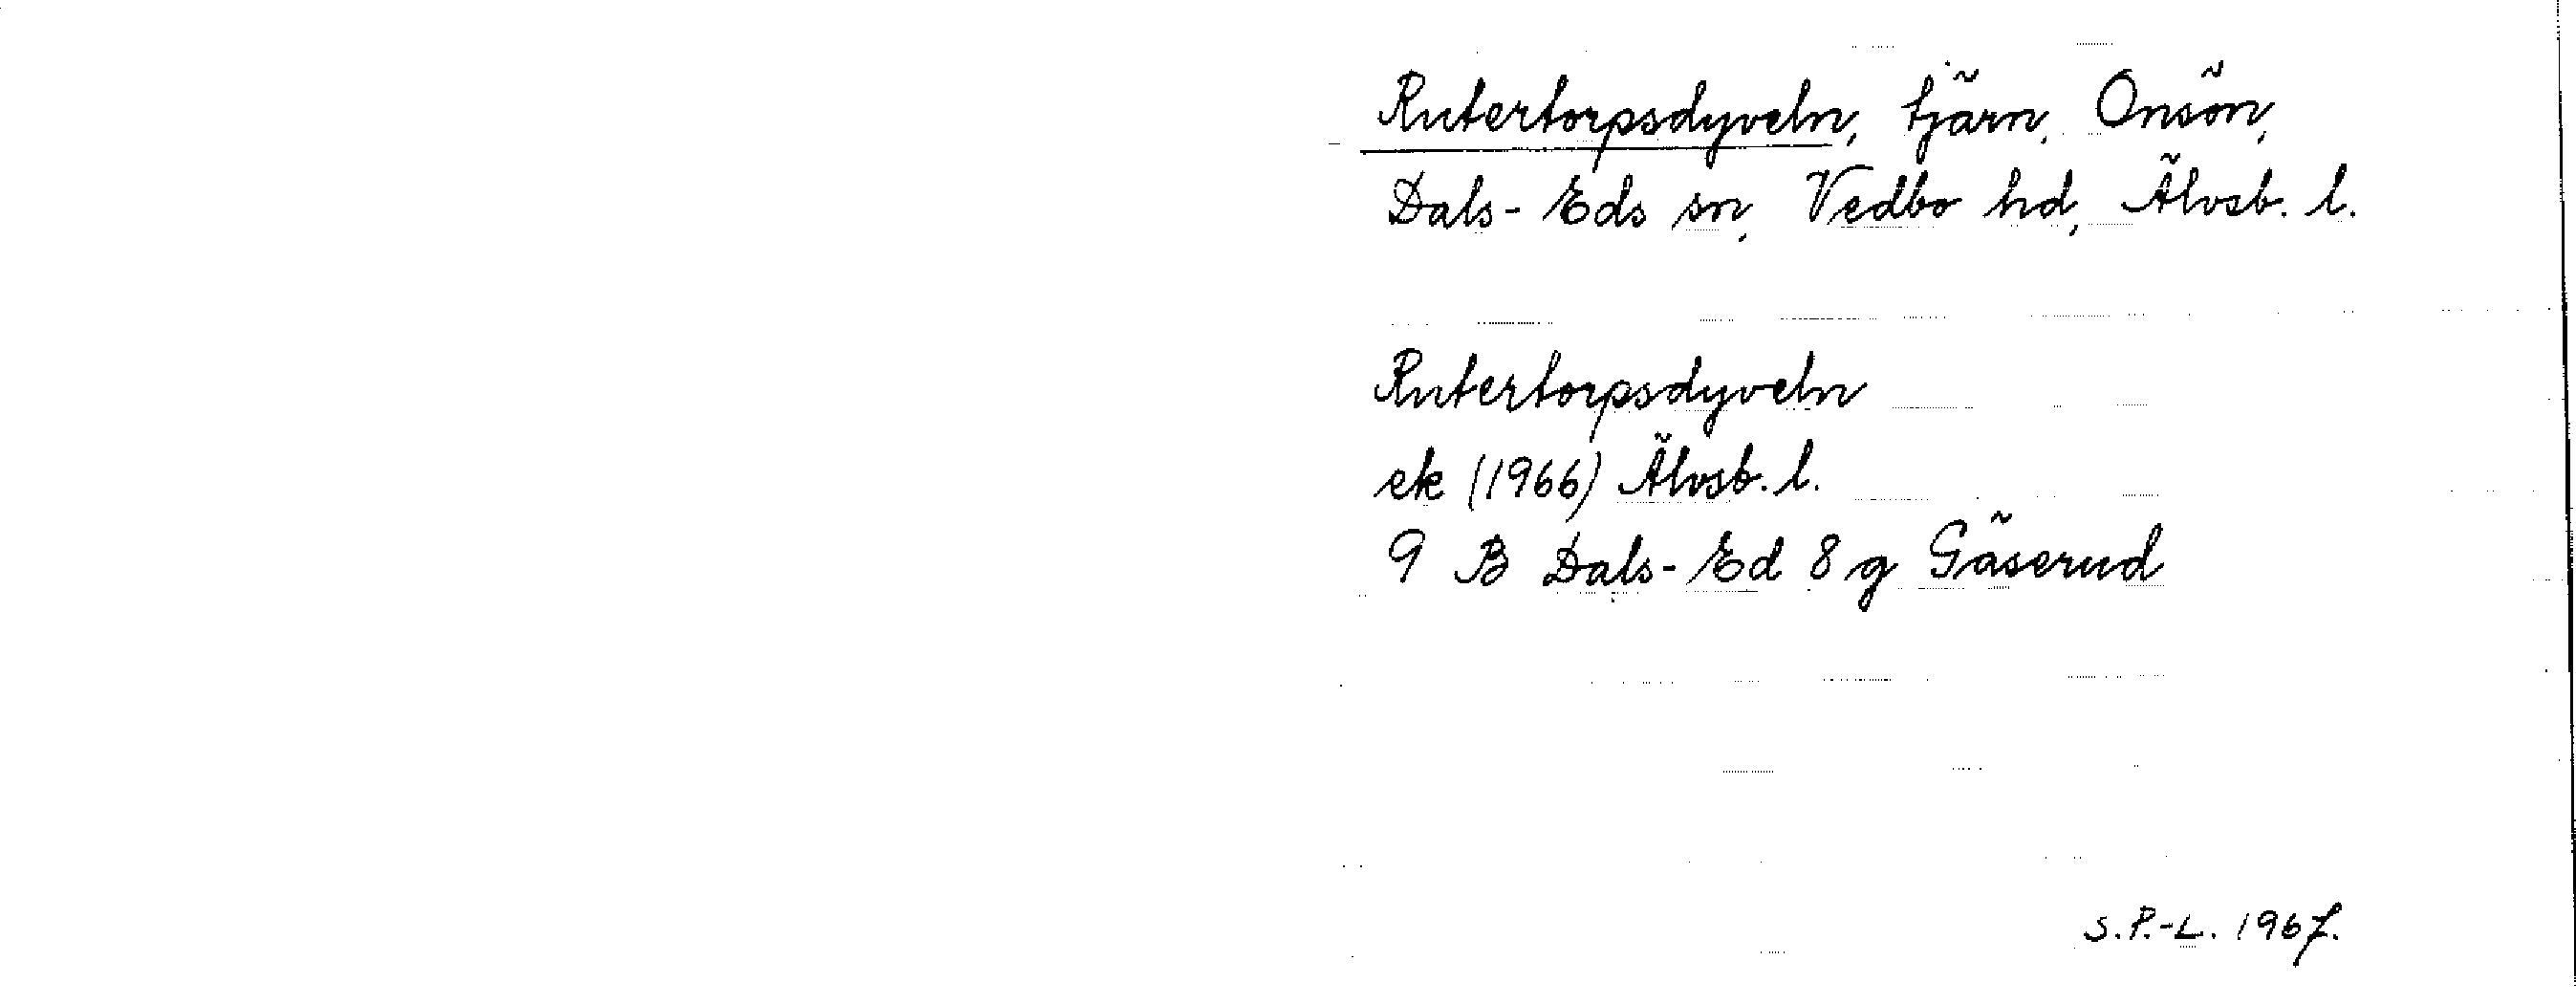 Rutertorpsdyveln, tjärn, Onsön,
Dals-Eds sn, Vedbo hd, Älvsb. l.
Rutertorpsdyveln
ek (1966) Älvsb. l.
9 B Dals-Ed 8 g Gäserud
S.P.-L. 1967.